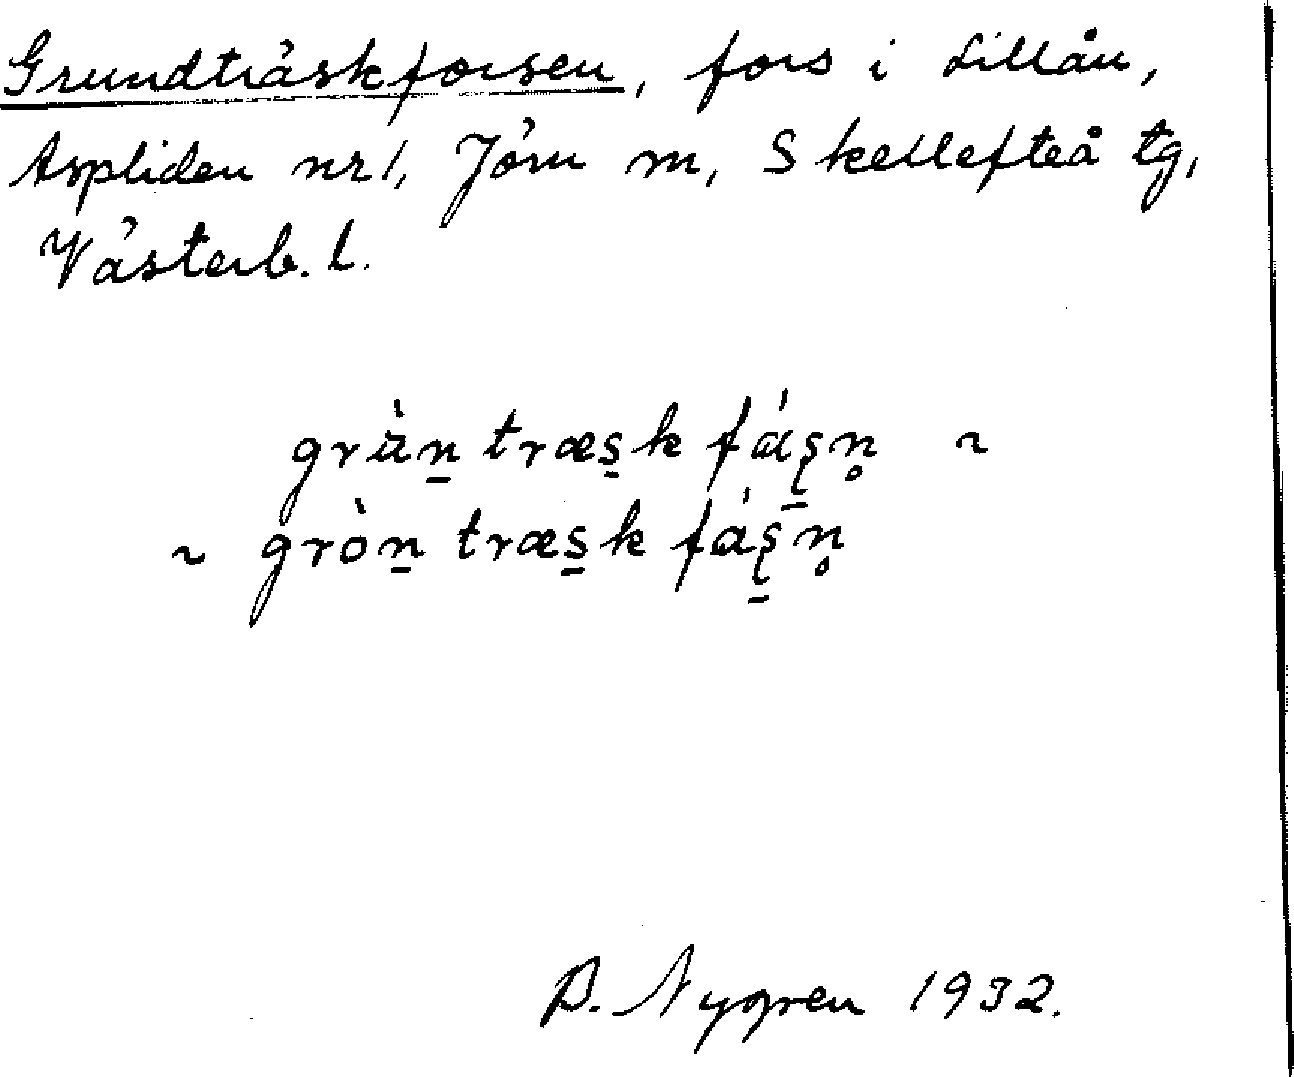 Grundträskforsen, fors i Lillån,
Aspliden nr 1, Jörn m, Skellefteå tg,
Västerb. l.
grùn̠ træs̠k fáʂ̠n̥ ~
~ gròn̠ træs̠k fáʂ̠n̥
B. Nygren 1932.